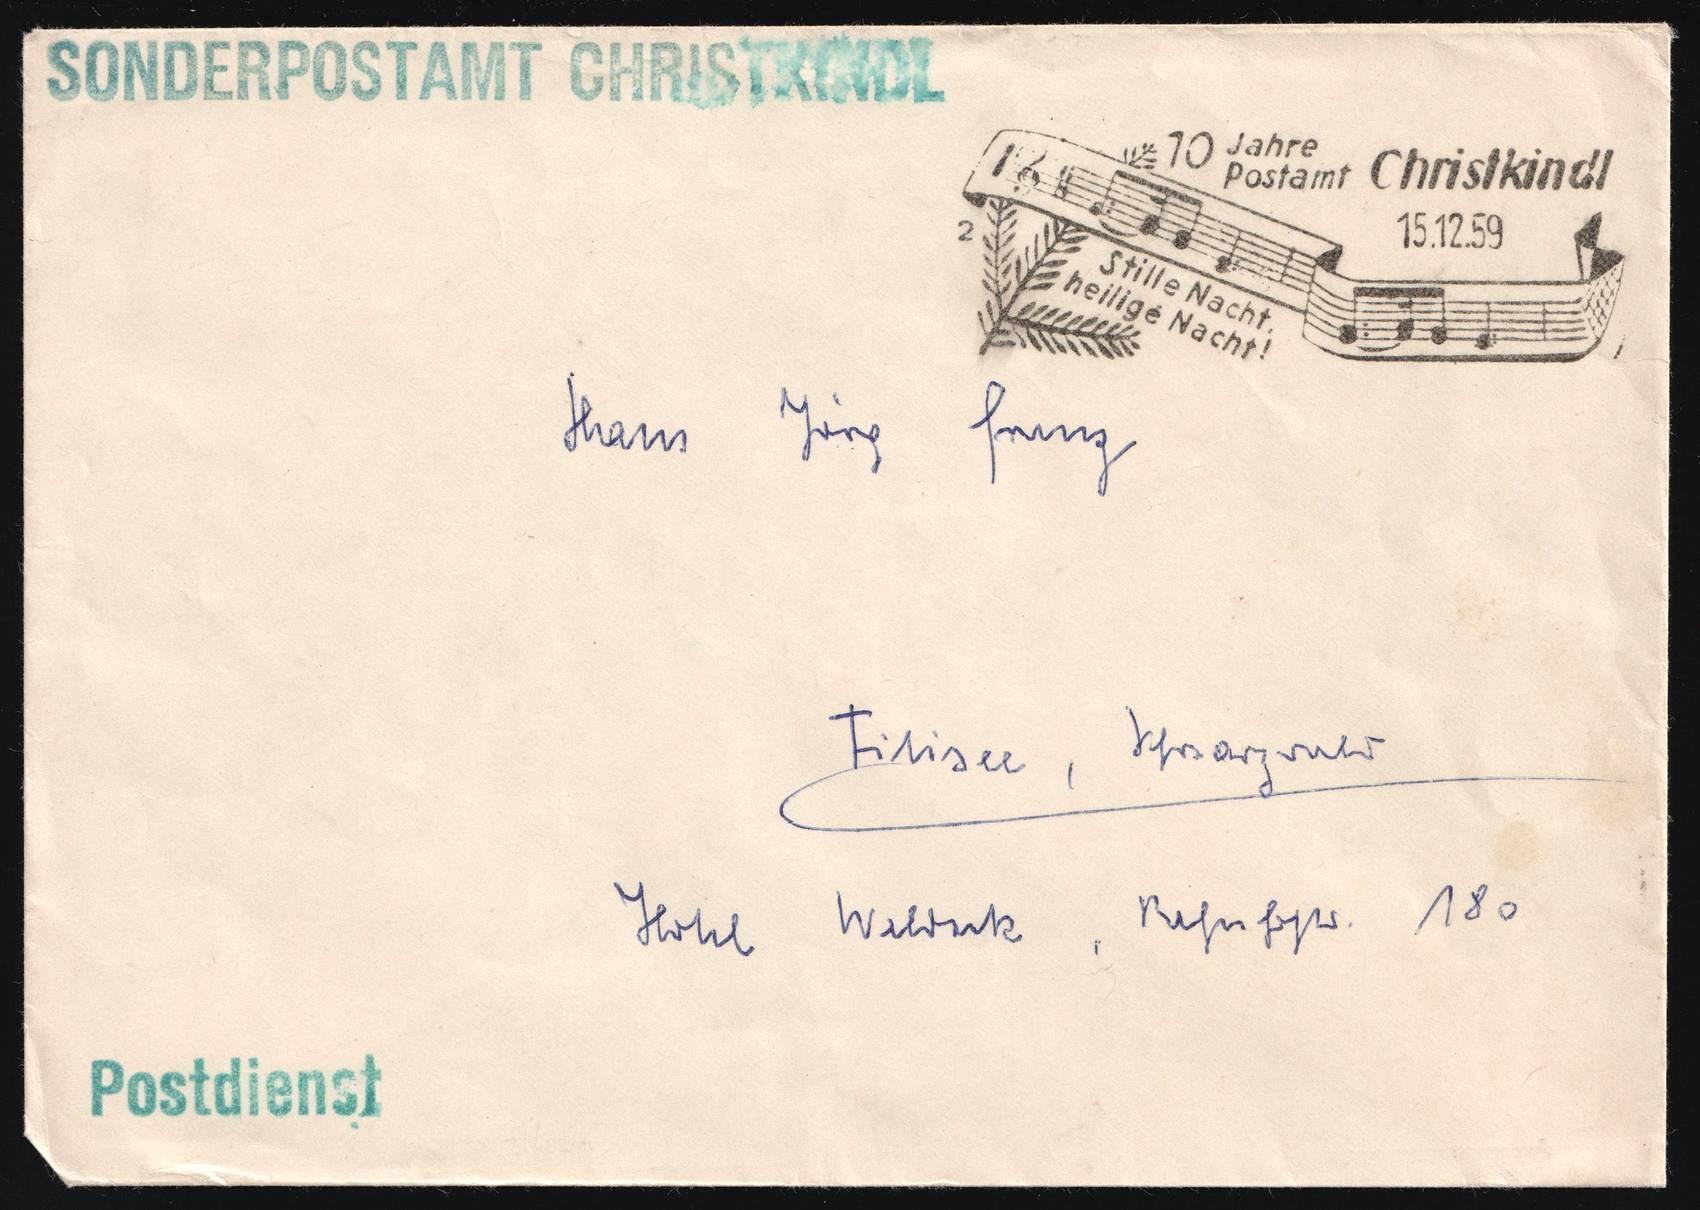 SONDERPOSTAMT CHRISTKINDL
10 Jahre Postamt Christkindl
15.12.59
2
Stille Nacht,
heilige Nacht!
Hans Jörg
Titisee, Schwarzwald
Hotel Waldeck, 180
Postdienst